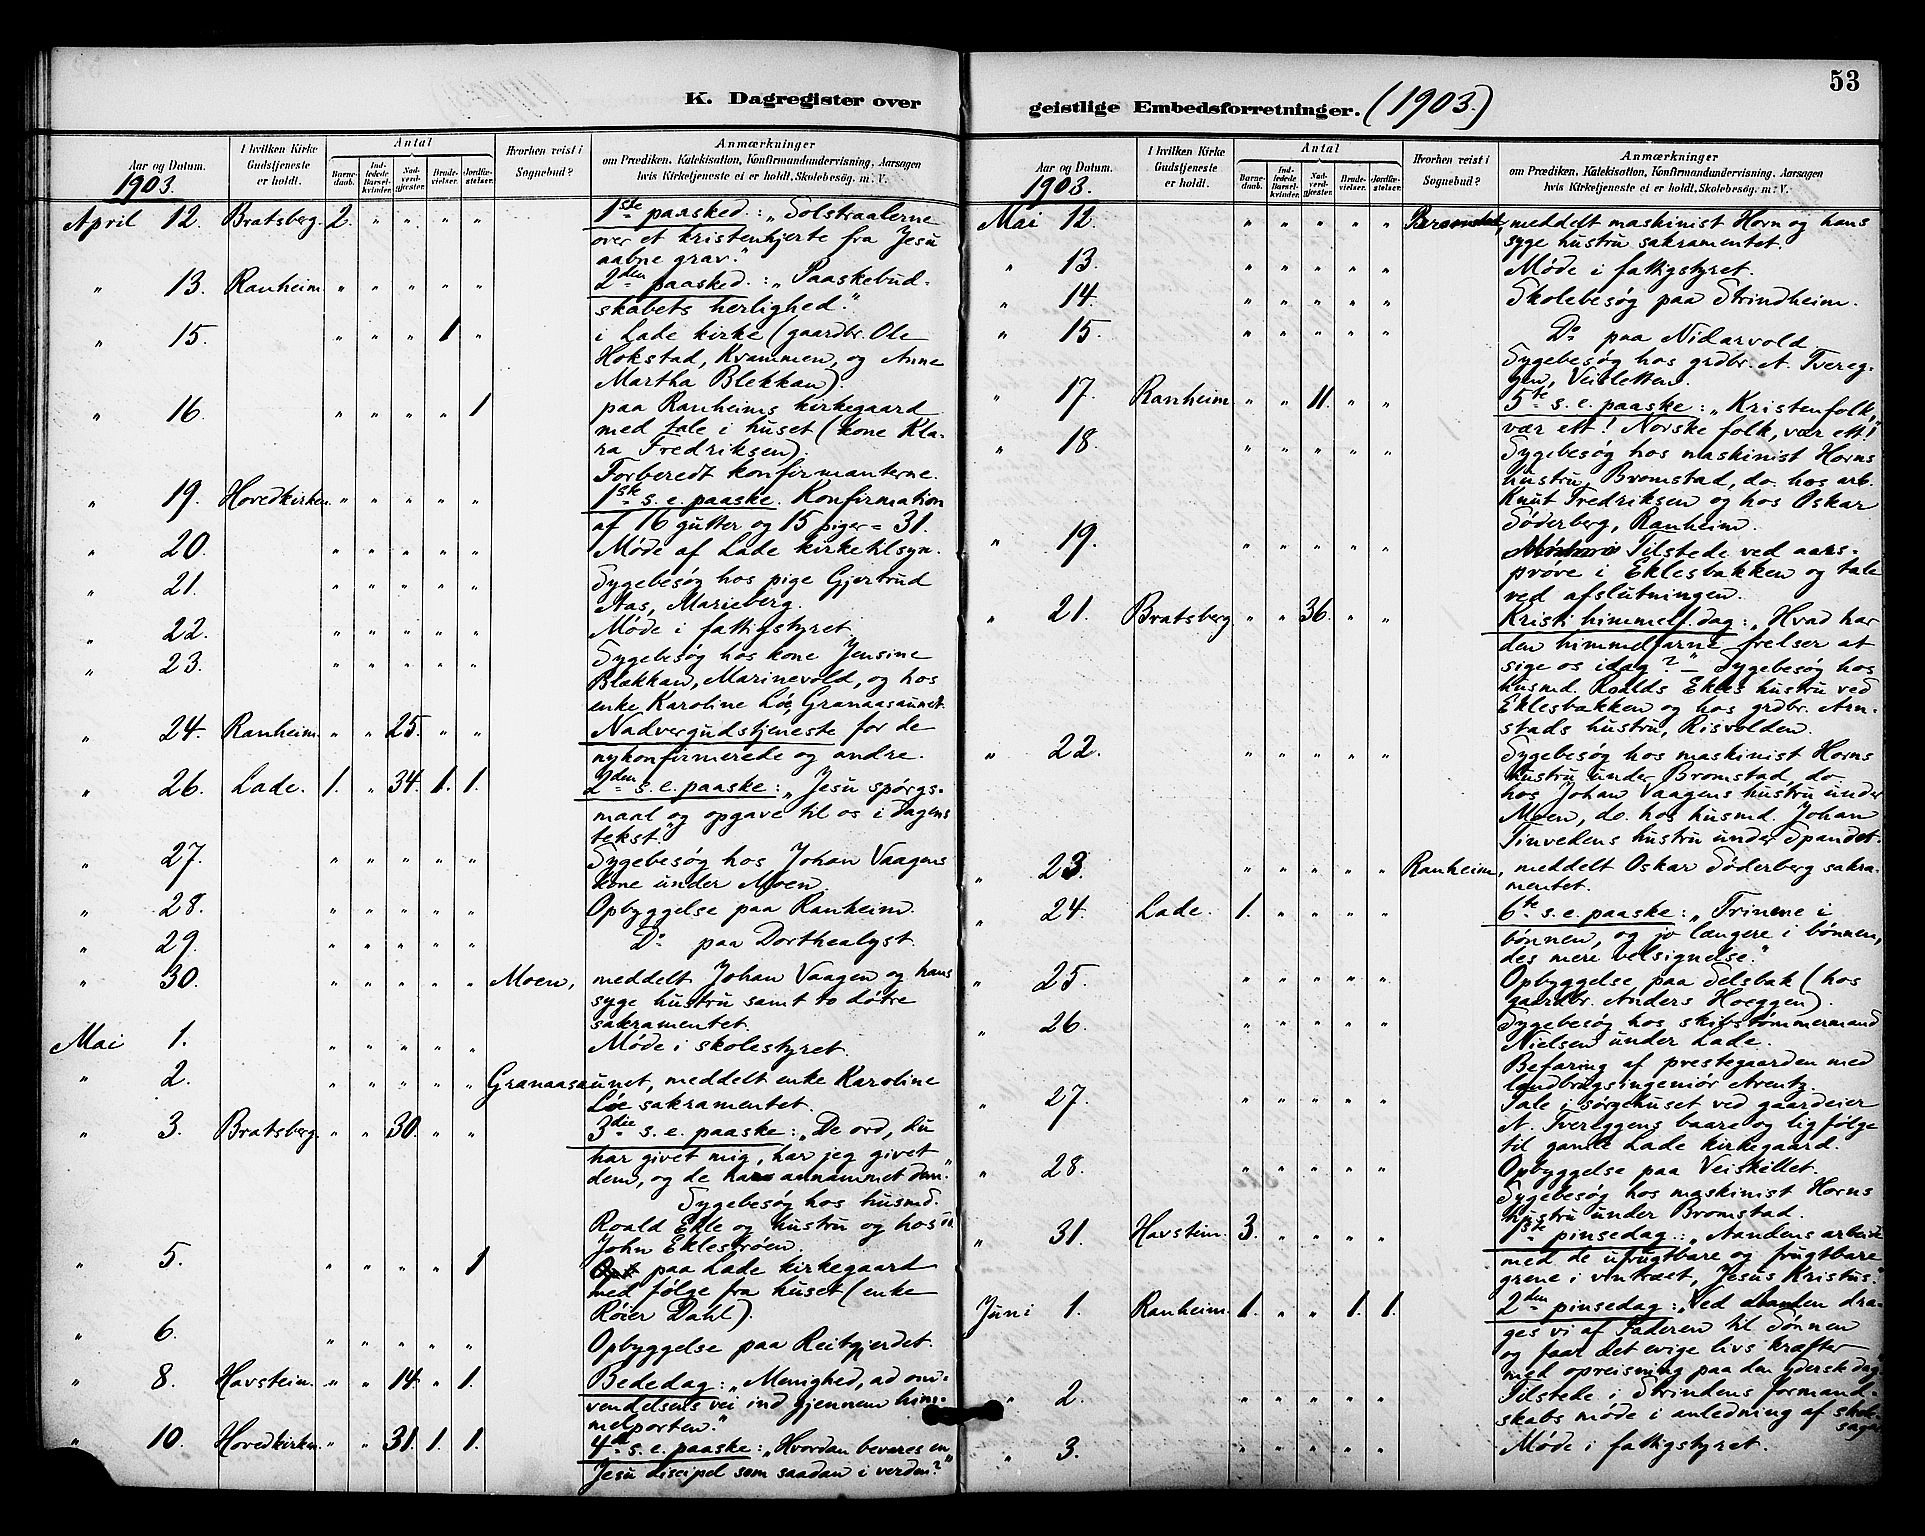 53
K. Dagregister over
Aar og Datum.
I hvilken Kirke Gudstjeneste er holdt.
Antal
Barnedaab.
Indledede Barselkvinder.
Nadverdgjester.
Brudevielser.
Jordfæstelser.
Hvorhen reist i Sognebud?
Anmærkninger
om Prædiken, Katekisation, Konfirmandundervisning, Aarsagen
hvis Kirketjeneste ei er holdt, Skolebesøg. m: V.
1903.
April 12. Bratsberg. 2. " " " " 1ste paasked.: "Solstraalerne
over et kristenhjerte fra Jesu
aabne grav."
" 13. Ranheim. " " " " " 2den paasked.: "Paaskebud-
skabets herlighed."
" 15. " " " 1 " i Lade kirke (gaardbr. Ole
Hokstad, Kvammen, og Anne
Martha Blekkan).
" 16. " " " " 1 paa Ranheims kirkegaard
med tale i huset (kone Kla-
ra Fredriksen).
Forberedt konfirmanterne.
" 19. Hovedkirken. " " " " " 1ste s. e. paaske. Konfirmation
af 16 gutter og 15 piger = 31.
" 20. " " " " " Møde af Lade kirketilsyn.
" 21. " " " " " Sygebesøg hos pige Gjertrud
Aas, Marieberg.
" 22. " " " " " Møde i fattigstyret.
" 23. " " " " " Sygebesøg hos kone Jensine
Blækkan, Marinevold, og hos
enke Karoline Löe, Granaasaunet.
" 24. Ranheim. " " 25. " " Nadvergudstjeneste for de
nykonfirmerede og andre.
" 26. Lade. 1. " 34. 1. 1. 2den s. e. paaske: "Jesu spørgs-
maal og opgave til os i dagens
tekst"
" 27. " " " " " Sygebesøg hos Johan Vaagens
kone under Moen.
" 28. " " " " " Opbyggelse paa Ranheim.
" 29. Do. paa Dorthealyst
" 30. " " " " " Moen, meddelt Johan Vaagen og hans
syge hustru samt to døtre
sakramentet.
Mai 1. " " " " " Møde i skolestyret.
" 2. " " " " " Granaasaunet, meddelt enke Karoline
Löe sakramentet.
" 3. Bratsberg. " " 30. " " 3die s. e. paaske: "De ord, du
har givet mig, har jeg givet
dem, og de have annammet dem."
Sygebesøg hos husmd.
Roald Ekle og hustru og hos
John Eklestrøen.
" 5. " " " " 1 paa Lade kirkegaard
med følge fra huset (enke
Røier Dahl).
" 6. " " " " " Opbyggelse paa Reitgjerdet.
" 8. Havstein. " " 14. " 1. Bededag: "Menighed, ad om-
vendelsens vei ind gjennem him-
melporten."
" 10. Hovedkirken " " 31. 1. 1. 4de s. e. paaske: "Hvordan bevares en
Jesu discipel som saadan i verden?"
geistlige Embedsforretninger. (1903.)
Aar og Datum.
I hvilken Kirke Gudstjeneste er holdt.
Antal
Barnedaab.
Indledede Barselkvinder.
Nadverdgjester.
Brudevielser.
Jordfæstelser.
Hvorhen reist i Sognebud?
Anmærkninger
om Prædiken, Katekisation, Konfirmandundervisning, Aarsagen
hvis Kirketjeneste ei er holdt, Skolebesøg m: V.
1903.
Mai 12. " " " " " meddelt maskinist Horn og hans
syge hustru sakramentet.
" 13. " " " " " Møde i fattigstyret.
" 14. " " " " " Skolebesøg paa Strindheim.
" 15. " " " " " Do. paa Nidarvold.
Sygebesøg hos grdbr. A. Tvereg-
gen, Veisletten.
" 17. Ranheim " " 11. " " 5te s. e. paaske: "Kristenfolk,
vær ett! Norske folk, vær ett!"
" 18. " " " " " Sygebesøg hos maskinist Horns
hustru, Bromstad, do. hos arb.
Knut Fredriksen og hos Oskar
Söderberg, Ranheim.
" 19. " " " " " Tilstede ved aars-
prøve i Eklesbakken og tale
ved afslutningen.
" 21. Bratsberg " " 36. " " Kristi himmelf. dag: "Hvad har
den himmelfarne frelser at
sige os idag?" – Sygebesøg hos
husmd. Roalds Ekles hustru ved
Eklesbakken og hos grdbr. Arn-
stads hustru, Risvolden.
" 22. " " " " " Sygebesøg hos maskinist Horns
hustru under Bromstad, do.
hos Johan Vaagens hustru under
Moen, do. hos husmd. Johan
Tinvedens hustru under Spandet.
" 23. " " " " " Ranheim, meddelt Oskar Söderberg sakra-
mentet.
" 24. Lade. 1. " " " " 6te s. e. paaske: "Trinene i
bønnen, og jo længere i bønnen,
des mere velsignelse."
" 25. " " " " " Opbyggelse paa Selsbak (hos
gaardbr. Anders Hoeggen).
" 26. " " " " " Sygebesøg hos skibstømmermand
Nielsen under Lade.
Befaring af prestegaarden med
landbrugsingeniør Arentz.
" 27. " " " " " Tale i sørgehuset ved gaardeier
A. Tvereggens baare og ligfølge
til gamle Lade kirkegaard.
" 28. " " " " " Opbyggelse paa Veiskillet.
Sygebesøg hos maskinist Horns
hustru under Bromstad.
" 31. Havstein. 3. " " " " 1ste pinsedag: "Aandens arbeide
med de ufrugtbare og frugtbare
grene i vintræet, Jesus Kristus."
Juni 1. Ranheim. 1. " " 1. 1. 2den pinsedag: "Ved aanden dra-
ges vi af Faderen til Sønnen
og faar det evige livs kræfter
med opreisning paa den yderste dag"
" 2. " " " " " Tilstede i Strindens formand-
skabs møde i anledning af skole-
sagen
" 3. " " " " " Møde i fattigstyret.